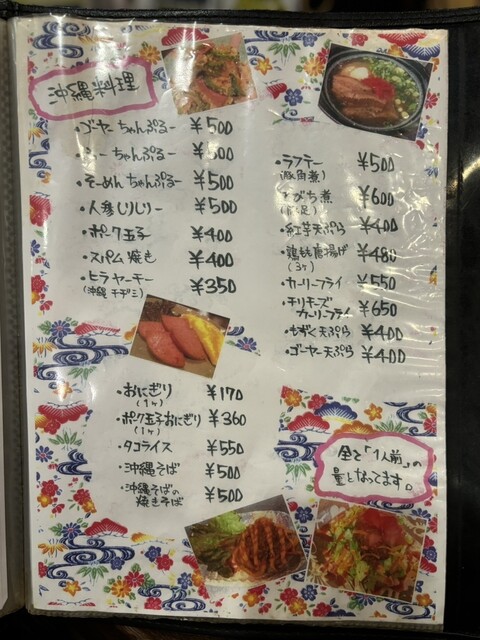 沖縄料理
・ゴーヤーちゃんぷるー ¥500
ーちゃんぷるー ¥500
・そーめんちゃんぷるー ¥500
・人参しりしりー ¥500
・ポーク玉子 ¥400
・スパム焼き ¥400
・ヒラヤーチー ¥350
(沖縄チヂミ)
・ラフテー ¥500
(豚角煮)
てびち煮 ¥600
(豚足)
・紅芋天ぷら ¥400
・鶏もも唐揚げ ¥480
(3ヶ)
・カーリーフライ ¥550
・チリチーズ
カーリーフライ ¥650
・もずく天ぷら ¥400
・ゴーヤー天ぷら ¥400
・おにぎり ¥170
(1ヶ)
・ポーク玉子おにぎり ¥360
(1ヶ)
・タコライス ¥550
・沖縄そば ¥500
・沖縄そばの
焼きそば ¥500
全て「1人前」の
量となってます。